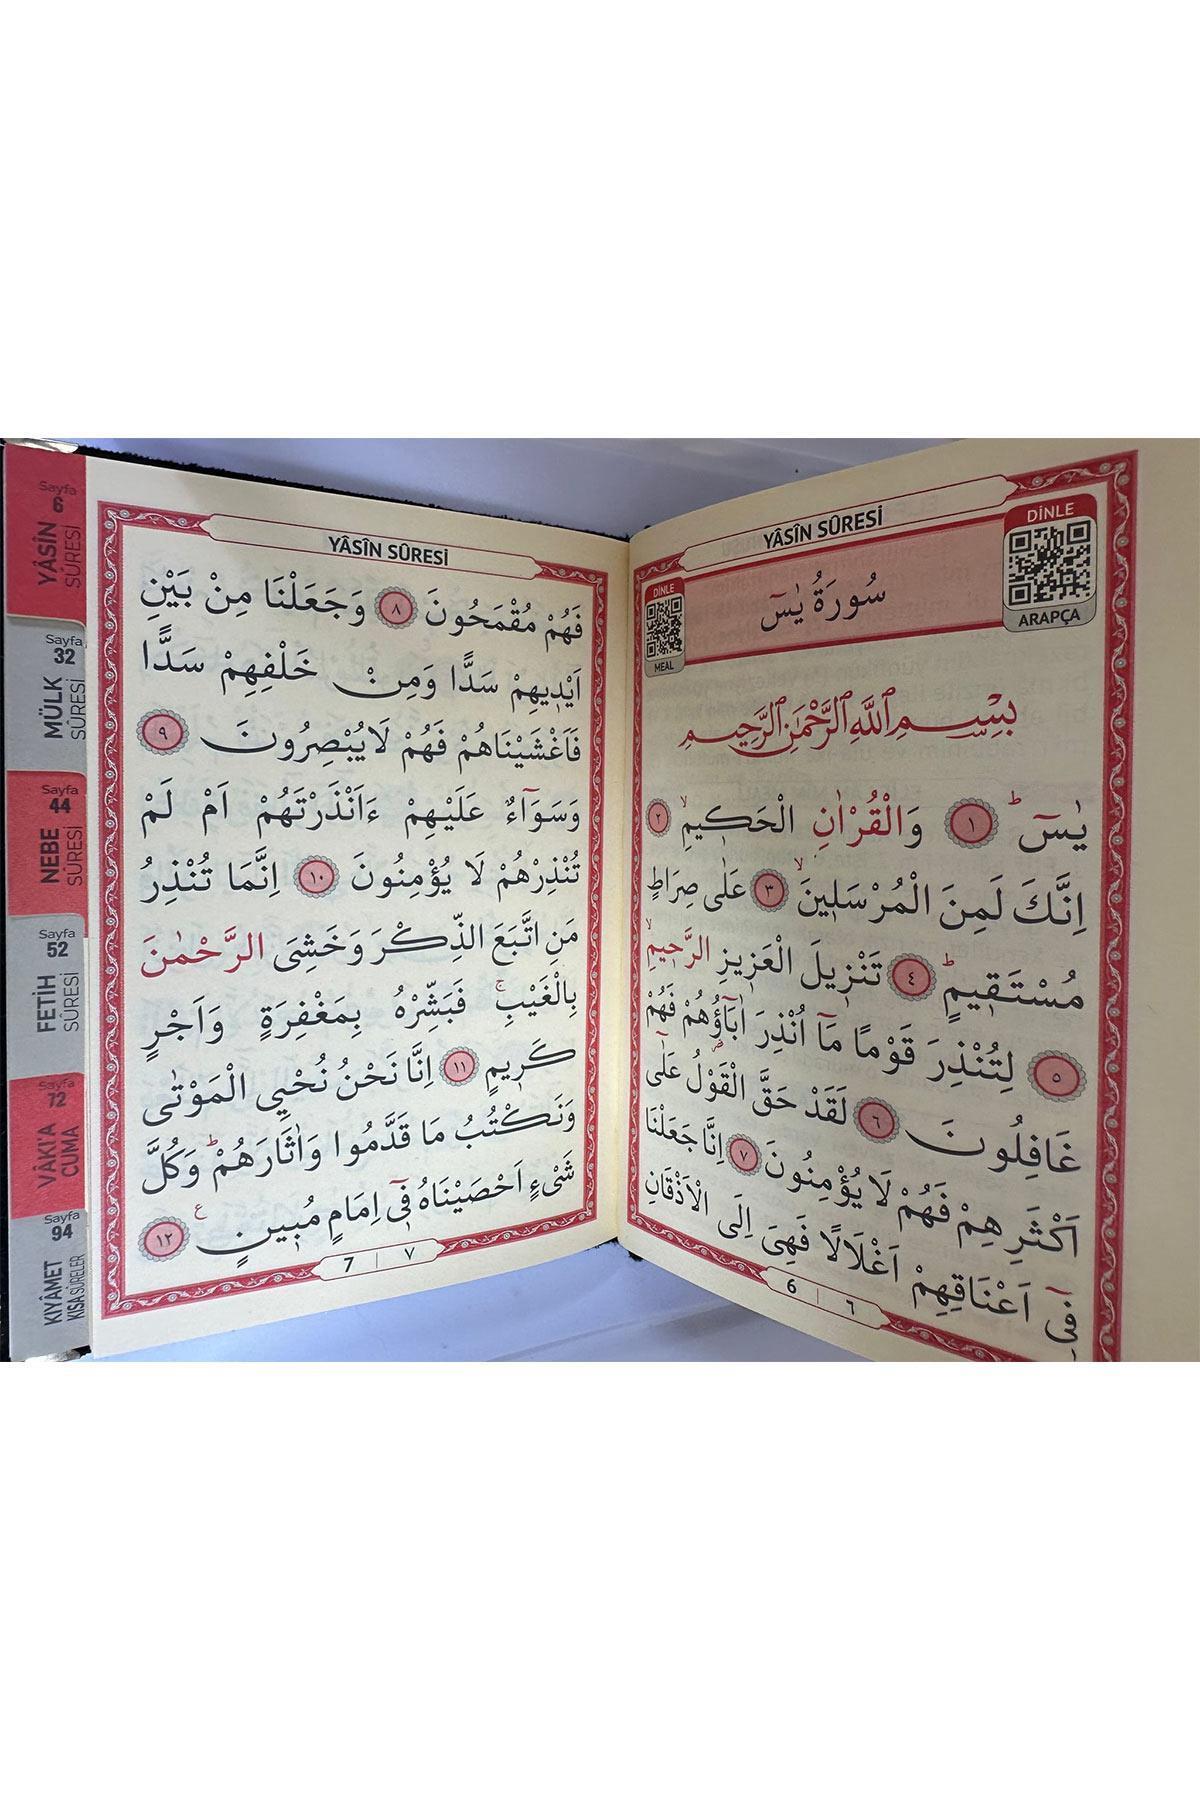 YÂSÎN SÛRESİ
DİNLE
ARAPÇA
DİNLE
MEAL
سُورَةُ يٰسٓ
بِسْمِ اللّٰهِ الرَّحْمٰنِ الرَّحِيمِ
يٰسٓ ۜ ﴿١﴾ وَالْقُرْاٰنِ الْحَك۪يمِۙ ﴿٢﴾
اِنَّكَ لَمِنَ الْمُرْسَل۪ينَۙ ﴿٣﴾ عَلٰى صِرَاطٍ
مُسْتَق۪يمٍۜ ﴿٤﴾ تَنْز۪يلَ الْعَز۪يزِ الرَّح۪يمِۙ
﴿٥﴾ لِتُنْذِرَ قَوْمًا مَٓا اُنْذِرَ اٰبَٓاؤُ۬هُمْ فَهُمْ
غَافِلُونَ ﴿٦﴾ لَقَدْ حَقَّ الْقَوْلُ عَلٰٓى
اَكْثَرِهِمْ فَهُمْ لَا يُؤْمِنُونَ ﴿٧﴾ اِنَّا جَعَلْنَا
ف۪ٓي اَعْنَاقِهِمْ اَغْلَالًا فَهِيَ اِلَى الْاَذْقَانِ
6 | ٦
YÂSÎN SÛRESİ
فَهُمْ مُقْمَحُونَ ﴿٨﴾ وَجَعَلْنَا مِنْ بَيْنِ
اَيْد۪يهِمْ سَدًّا وَمِنْ خَلْفِهِمْ سَدًّا
فَاَغْشَيْنَاهُمْ فَهُمْ لَا يُبْصِرُونَ ﴿٩﴾
وَسَوَٓاءٌ عَلَيْهِمْ ءَاَنْذَرْتَهُمْ اَمْ لَمْ
تُنْذِرْهُمْ لَا يُؤْمِنُونَ ﴿١٠﴾ اِنَّمَا تُنْذِرُ
مَنِ اتَّبَعَ الذِّكْرَ وَخَشِيَ الرَّحْمٰنَ
بِالْغَيْبِۚ فَبَشِّرْهُ بِمَغْفِرَةٍ وَاَجْرٍ
كَر۪يمٍ ﴿١١﴾ اِنَّا نَحْنُ نُحْيِي الْمَوْتٰى
وَنَكْتُبُ مَا قَدَّمُوا وَاٰثَارَهُمْۜ وَكُلَّ
شَيْءٍ اَحْصَيْنَاهُ ف۪ٓي اِمَامٍ مُب۪ينٍ ع ﴿١٢﴾
7 | ٧
Sayfa 6
YÂSÎN
SÛRESİ
Sayfa 32
MÜLK
SÛRESİ
Sayfa 44
NEBE
SÛRESİ
Sayfa 52
FETİH
SÛRESİ
Sayfa 72
VÂKI'A
CUMA
Sayfa 94
KIYÂMET
KISA SÛRELER